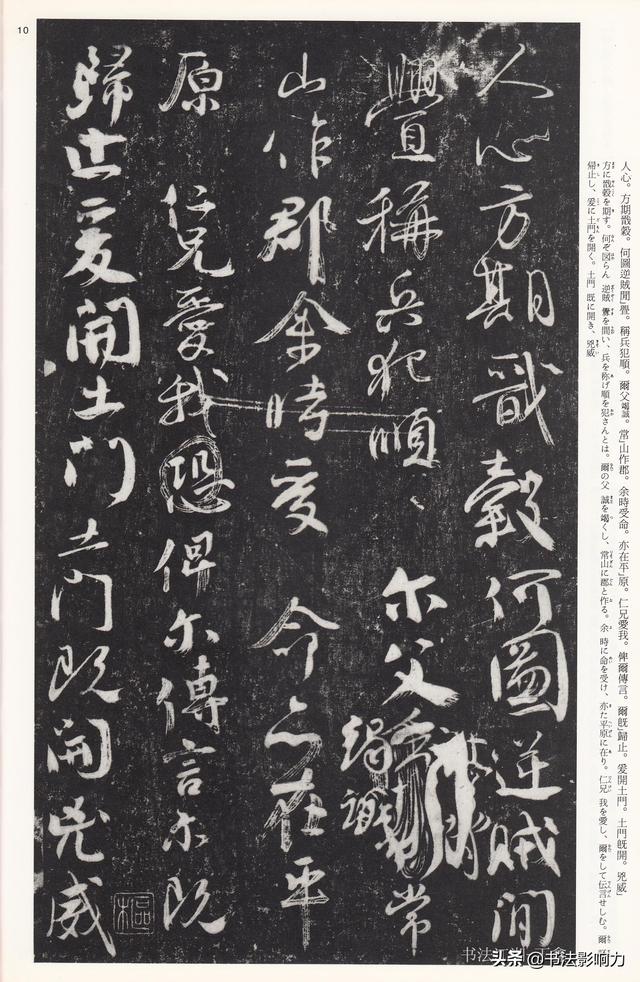 10
人心方期戩穀何圖逆賊間
釁稱兵犯順 爾父竭誠常
山作郡余時受 命亦在平
原 仁兄愛我恐俾爾傳言爾既
歸止爰開土門土門既開兇威
人心。方期戩穀。何圖逆賊閒」釁。稱兵犯順。爾父竭誠。常」山作郡。余時受命。亦在平」原。仁兄愛我。俾爾傳言。爾既」歸止。爰開土門。土門既開。兇威」
方に戩穀を期す。何ぞ図らん 逆賊 釁を間い、兵を称げ順を犯さんとは。爾の父 誠を竭くし、常山に郡と作る。余 時に命を受け、亦た平原に在り。仁兄 我を愛し、爾をして伝言せしむ。爾 既に
帰止し、爰に土門を開く。土門 既に開き、兇威
头条 @书法影响力